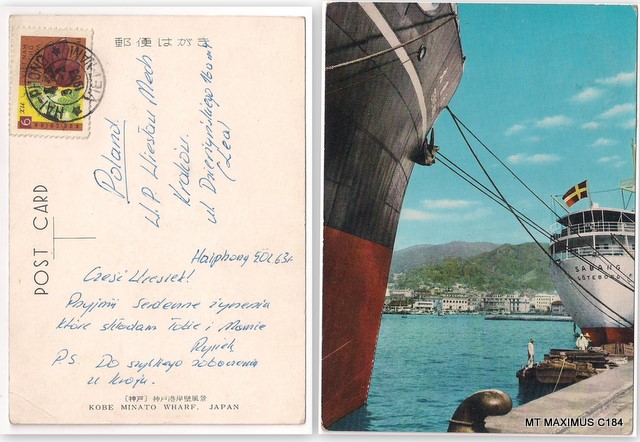 郵便はがき
POST CARD
HAI-PHONG
VIET NAM
Poland
W.P. Wiesław
Kraków
ul. Dzierżyńskiego
Haiphong
Cześć Wiesiek!
Przyjmij serdeczne życzenia
które składam Tobie i Mamie
Rysiek
P.S. Do szybkiego zobaczenia
w kraju.
〔神戸〕 神戸港岸壁風景
KOBE MINATO WHARF, JAPAN
SABANG
GÖTEBORG
MT MAXIMUS C184